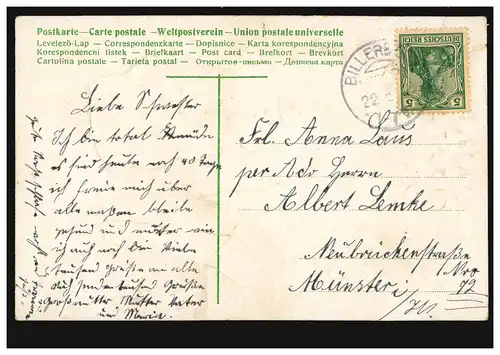 Postkarte — Carte postale — Weltpostverein — Union postale universelle
Levelező-Lap — Correspondenzkarte — Dopisnice — Karta korespondencyjna
Korespondenčni listek — Briefkaart — Post card — Brefkort — Brevkort
Cartolina postale — Tarjeta postal — Открытое письмо — Дописна карта
BILLERB
22
DEUTSCHES REICH
5 5
Liebe Schwester
Ich bin total
es sind heute noch 40 Tage
ich freie mich über
alle maßen bleibe
gesund und munter wie
ich auch noch bin Viele
tausend Grüße an alle
auch tausend Grüße
Großmutter Mutter Vater
und Maria.
Frl. Anna Laus
per Adr Herrn
Albert Lemke
Neubrückenstraße
Nro 72
Münster i/W.